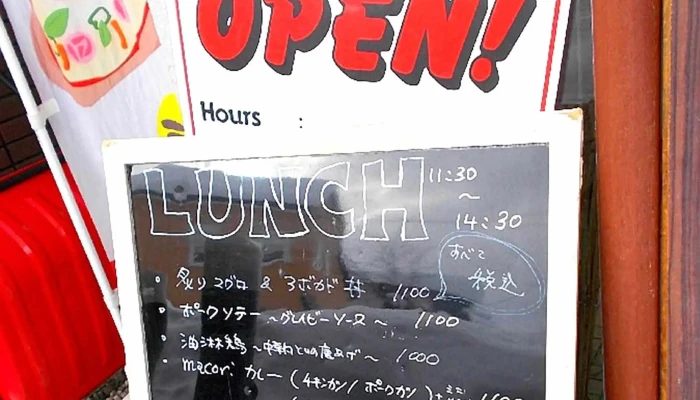 OPEN!
Hours :
LUNCH 11:30
~
14:30
すべて
税込
・炙りマグロ & アボカド丼 1100
・ポークソテー ~グレイビーソース~ 1100
・油淋鶏 ~中華 1000
・macori カレー (チキンカツ/ポークカツ)